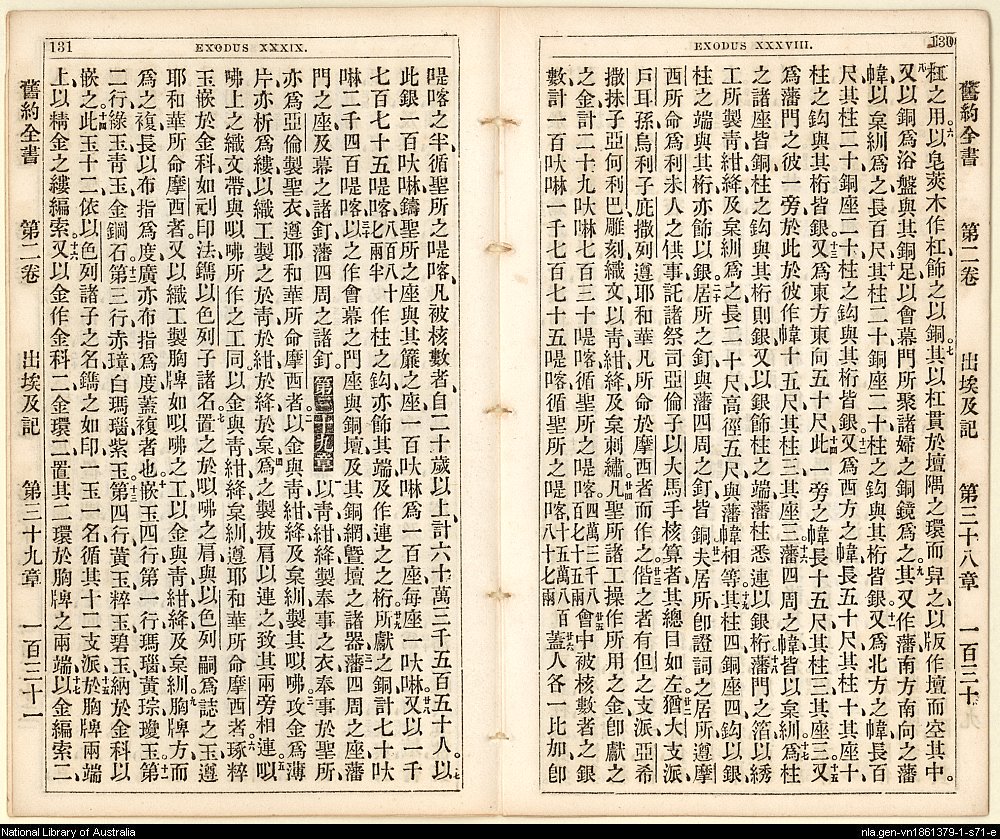 舊約全書　第二卷　出埃及記　第三十八章　一百三十
EXODUS XXXVIII.
130
杠之用、以皂莢木作杠、飾之以銅、其以杠貫於壇隅之環而舁之、以版作壇而空其中。
又以銅爲浴盤與其銅足、以會幕門所聚諸婦之銅鏡爲之、其又作藩、南方南向之藩
幃、以枲紃爲之、長百尺、其柱二十、銅座二十、柱之鈎與其桁皆銀、又爲北方之幃、長百
尺、其柱二十、銅座二十、柱之鈎與其桁皆銀、又爲西方之幃、長五十尺、其柱十、其座十、
柱之鈎與其桁皆銀、又爲東方東向五十尺、此一旁之幃長十五尺、其柱三、其座三、又
爲藩門之彼一旁、於此於彼作幃十五尺、其柱三、其座三、藩四周之幃、皆以枲紃爲、柱
之諸座皆銅、柱之鈎與其桁則銀、又以銀飾柱之端、藩柱悉連以銀桁、藩門之箔、以綉
工所製青紺絳及枲紃爲之、長二十尺、高徑五尺、與藩幃相等、其柱四、銅座四、鈎以銀、
柱之端與其桁亦飾以銀、居所之釘與藩四周之釘皆銅、夫居所卽證詞之居所、遵摩
西所命、爲利未人之供事、託諸祭司亞倫子以大馬手核算者、其總目如左、猶大支派、
戶耳孫烏利子庇撒列、遵耶和華凡所命於摩西者而作之、偕之者有但之支派亞希
撒抹子亞何利巴、雕刻織文、以青紺絳及枲刺繡、凡聖所諸工操作所用之金、卽獻之
之金、計二十九呔啉七百三十㖷喀、循聖所之㖷喀、四萬三千八百七十五兩 會中被核數者之銀
數、計一百呔啉一千七百七十五㖷喀、循聖所之㖷喀、十五萬八百八十七兩 蓋人各一比加、卽
EXODUS XXXIX.
131
㖷喀之半、循聖所之㖷喀、凡被核數者、自二十歲以上、計六十萬三千五百五十人、以
此銀一百呔啉鑄聖所之座、與其簾之座、一百呔啉爲一百座、每座一呔啉、又以一千
七百七十五㖷喀、八百八十七兩半 作柱之鈎、亦飾其端、及作連之之桁、所獻之銅、計七十呔
啉二千四百㖷喀、以之作會幕之門座、與銅壇及其銅網、曁壇之諸器、藩四周之座、藩
門之座、及幕之諸釘、藩四周之諸釘。第三十九章 以青紺絳製奉事之衣、奉事於聖所、
亦爲亞倫製聖衣、遵耶和華所命摩西者、以金與青紺絳及枲紃製其㕥咈、攻金爲薄
片、亦析爲縷、以織工製之於青、於紺、於絳、於枲、爲之製披肩以連之、致其兩旁相連、㕥
咈上之織文帶、與㕥咈所作之工同、以金與青紺絳枲紃、遵耶和華所命摩西者、琢粹
玉嵌於金科、如刓印法鐫以色列子諸名、置之於㕥咈之肩、與以色列嗣爲誌之玉、遵
耶和華所命摩西者、又以織工製胸牌、如㕥咈之工、以金與青紺絳及枲紃、胸牌方而
爲之複、長以布指爲度、廣亦布指爲度、蓋複者也、嵌玉四行、第一行、瑪瑙、黃琮、璦玉、第
二行、綠玉、青玉、金鋼石、第三行、赤璋、白瑪瑙、紫玉、第四行、黃玉、粹玉、碧玉、納於金科以
嵌之、此玉十二、依以色列諸子之名、鐫之如印、一玉一名、循其十二支派、於胸牌兩端
上、以精金之縷編索、又以金作金科二、金環二、置其二環於胸牌之兩端、以金編索二、
舊約全書　第二卷　出埃及記　第三十九章　一百三十一
National Library of Australia
nla.gen-vn1861379-1-s71-e